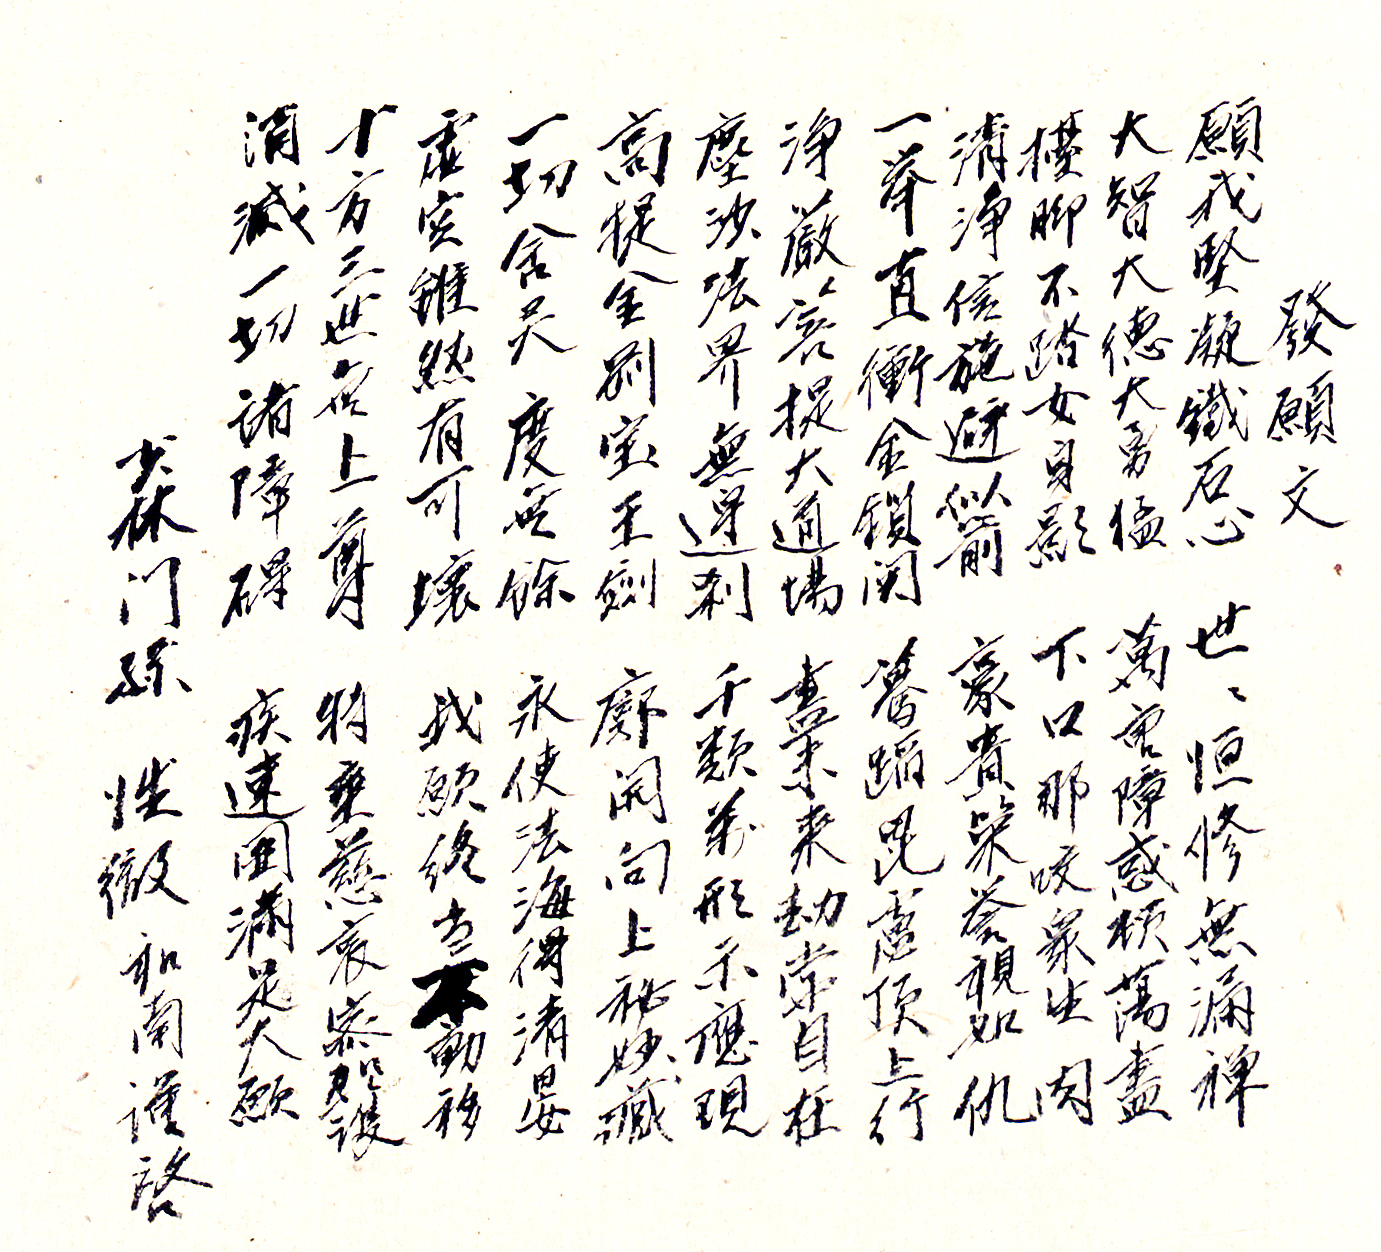 發願文
願我堅凝鐵石心　世々恒修無漏禅
大智大德大勇猛　萬害障惑頓蕩盡
擡脚不踏女身影　下口那咬衆生肉
清浄信施避似箭　豪貴榮譽視如仇
一举直衝金鎖関　驀蹈毘盧頂上行
浄嚴菩提大道場　盡未来劫常自在
塵沙法界無邊刹　千類萬形示應現
高提金剛宝王劍　廓開向上秘妙藏
一切含灵度無餘　永使法海得清晏
虚空雖然有可壊　我願終当不動移
十方三世無上尊　特垂慈哀密護
消滅一切諸障碍　疾速圓満是大願
少林门孫　性徹　和南謹啓